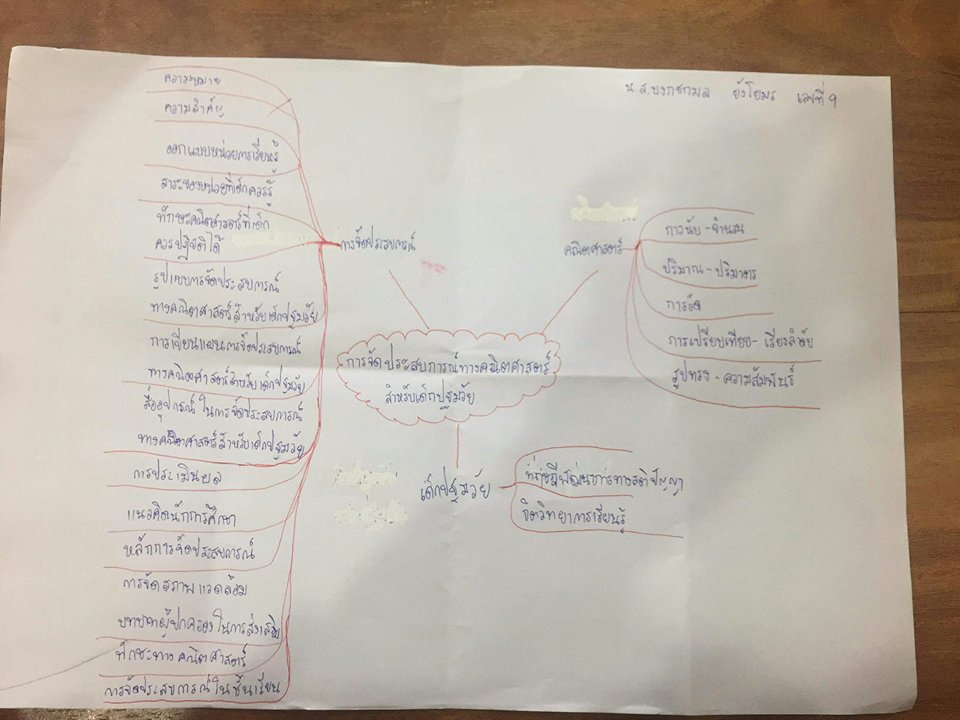 น.ส.บงกชกมล ยังโยมร เลขที่ 9
ความหมาย
ความสำคัญ
ออกแบบหน่วยการเรียนรู้
สาระของหน่วยที่เด็กควรรู้
ทักษะคณิตศาสตร์ที่เด็ก
ควรปฏิบัติได้
รูปแบบการจัดประสบการณ์
ทางคณิตศาสตร์สำหรับเด็กปฐมวัย
การเขียนแผนการจัดประสบการณ์
ทางคณิตศาสตร์สำหรับเด็กปฐมวัย
สื่ออุปกรณ์ในการจัดประสบการณ์
ทางคณิตศาสตร์สำหรับเด็กปฐมวัย
การประเมินผล
แนวคิดนักการศึกษา
หลักการจัดประสบการณ์
การจัดสภาพแวดล้อม
บทบาทผู้ปกครองในการส่งเสริม
ทักษะทางคณิตศาสตร์
การจัดประสบการณ์ในชั้นเรียน
การจัดประสบการณ์
คณิตศาสตร์
การนับ - จำนวน
ปริมาณ - ปริมาตร
การวัด
การเปรียบเทียบ - เรียงลำดับ
รูปทรง - ความสัมพันธ์
การจัดประสบการณ์ทางคณิตศาสตร์
สำหรับเด็กปฐมวัย
เด็กปฐมวัย
ทฤษฎีพัฒนาการทางสติปัญญา
จิตวิทยาการเรียนรู้